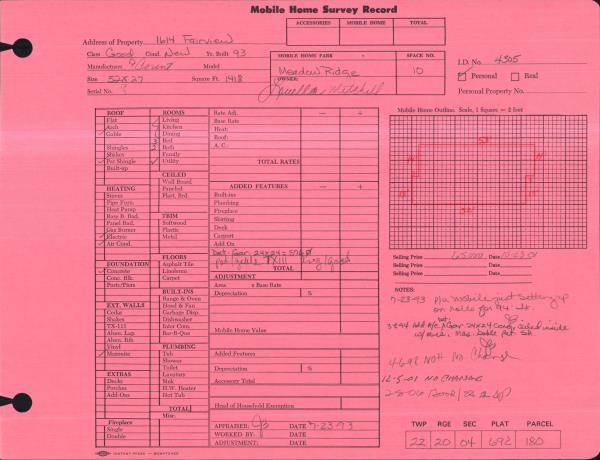 Mobile Home Survey Record
ACCESSORIES MOBILE HOME TOTAL
Address of Property 1614 Fairview
Class Good Cond. New Yr. Built 93
Manufacturer Model
Size 52X27 Square Ft. 1418
Serial No.
MOBILE HOME PARK SPACE NO.
Meadow Ridge 10
OWNER:
Mitchell
I.D. No. 4305
Personal Real
Personal Property No.
Mobile Home Outline. Scale, 1 Square = 2 feet
ROOF
Flat
Arch
Gable
Shingles
Shakes
Pat Shingle
Built-up
HEATING
Stoves
Pipe Furn.
Heat Pump
Base B. Rad.
Panel Rad.
Gas Burner
Electric
Air Cond.
FOUNDATION
Concrete
Conc. Blk.
Posts/Piers
EXT. WALLS
Cedar
Shakes
TX-111
Alum. Lap
Alum. Rib
Vinyl
Masonite
EXTRAS
Decks
Porches
Add-Ons
Fireplace
Single
Double
ROOMS
Living
Kitchen
1 Dining
3 Bed
2 Bath
Family
Utility
CEILED
Wall Board
Paneled
Plast. Brd.
TRIM
Softwood
Plastic
Metal
FLOORS
Asphalt Tile
Linoleum
Carpet
BUILT-INS
Range & Oven
Hood & Fan
Garbage Disp.
Dishwasher
Inter Com.
Bar-B-Que
PLUMBING
Tub
Shower
Toilet
Lavatory
Sink
H.W. Heater
Hot Tub
TOTAL
Misc.
Rate Adj. — +
Base Rate
Heat:
Roof:
A. C.
TOTAL RATES
ADDED FEATURES — +
Built-ins
Plumbing
Fireplace
Skirting
Deck
Carport
Add On
Det. Gar. 24X24=576
TX111
TOTAL
ADJUSTMENT
Area x Base Rate
Depreciation %
Mobile Home Value
Added Features
Depreciation %
Accessory Total
Head of Household Exemption
APPRAISER: DATE 7-23-93
WORKED BY: DATE
ADJUSTMENT: DATE
52'
52'
Selling Price 65,000 Date 10-23-01
Selling Price Date
Selling Price Date
NOTES:
7-23-93 mobile just setting up
on
3-8-94 Add A/C Gar. 24X24 ceiled inside
4-6-98 No Change
12-5-01 NO CHANGE
TWP RGE SEC PLAT PARCEL
22 20 04 692 180